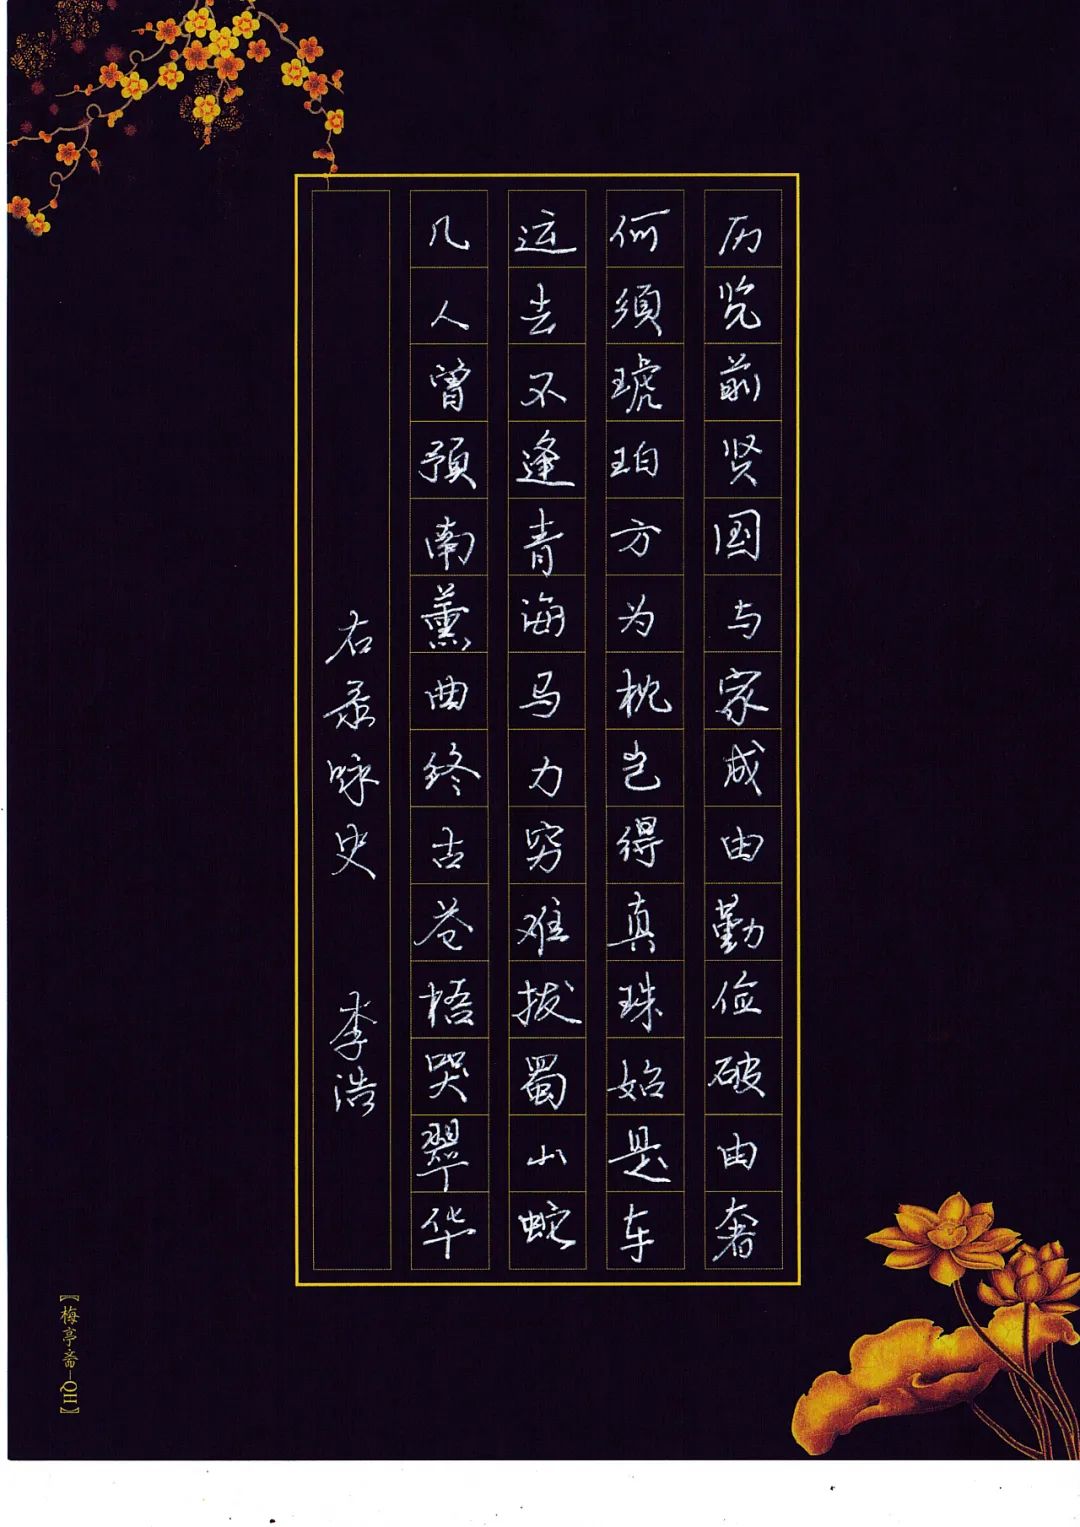 历览前贤国与家成由勤俭破由奢
何須琥珀方为枕岂得真珠始是车
运去不逢青海马力穷难拔蜀山蛇
几人曾預南薰曲终古苍梧哭翠华
右录咏史 李浩
【梅亭斋—QH】